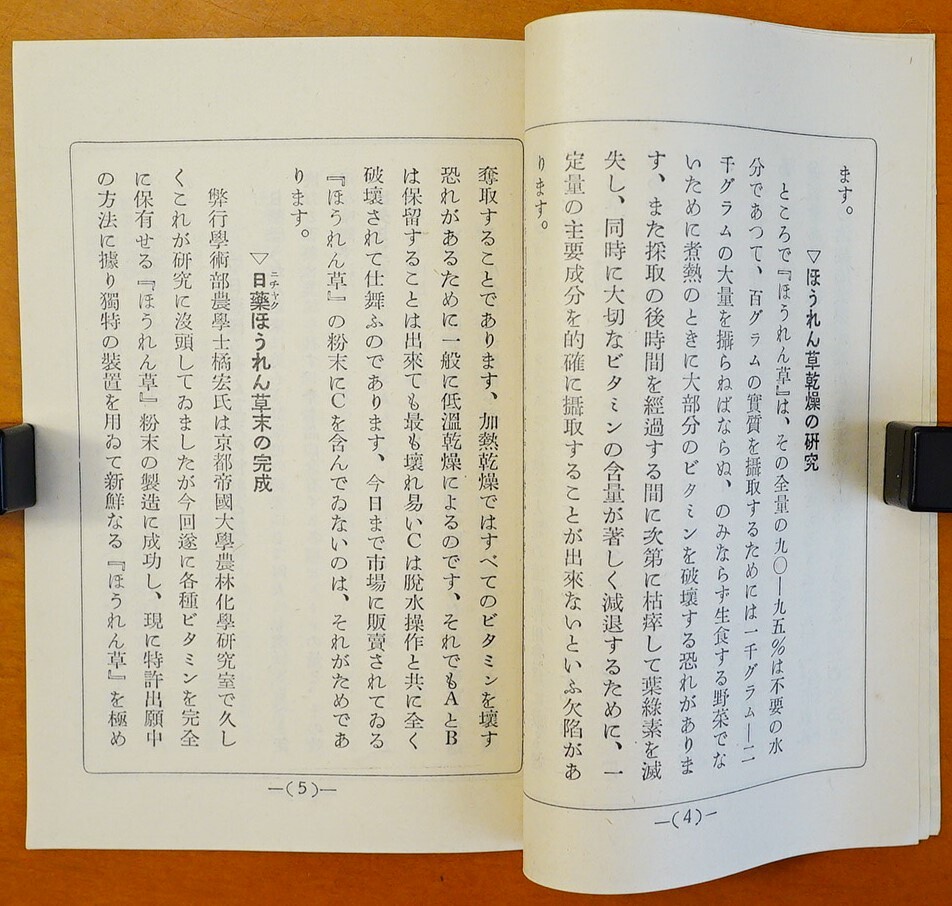 ます。
▽ほうれん草乾燥の研究
ところで『ほうれん草』は、その全量の九〇―九五％は不要の水
分であつて、百グラムの實質を攝取するためには一千グラム―二
千グラムの大量を攝らねばならぬ、のみならず生食する野菜でな
いために煮熱のときに大部分のビタミンを破壞する恐れがありま
す、また採取の後時間を經過する間に次第に枯瘁して葉綠素を滅
失し、同時に大切なビタミンの含量が著しく減退するために、一
定量の主要成分を的確に攝取することが出來ないといふ欠陷があ
ります。
―(4)―
奪取することであります、加熱乾燥ではすべてのビタミンを壞す
恐れがあるために一般に低溫乾燥によるのです、それでもAとB
は保留することは出來ても最も壞れ易いCは脫水操作と共に全く
破壞されて仕舞ふのであります、今日まで市場に販賣されてゐる
『ほうれん草』の粉末にCを含んでゐないのは、それがためであ
ります。
▽日藥ニチヤクほうれん草末の完成
弊行學術部農學士橘宏氏は京都帝國大學農林化學研究室で久し
くこれが研究に沒頭してゐましたが今回遂に各種ビタミンを完全
に保有せる『ほうれん草』粉末の製造に成功し、現に特許出願中
の方法に據り獨特の裝置を用ゐて新鮮なる『ほうれん草』を極め
―(5)―